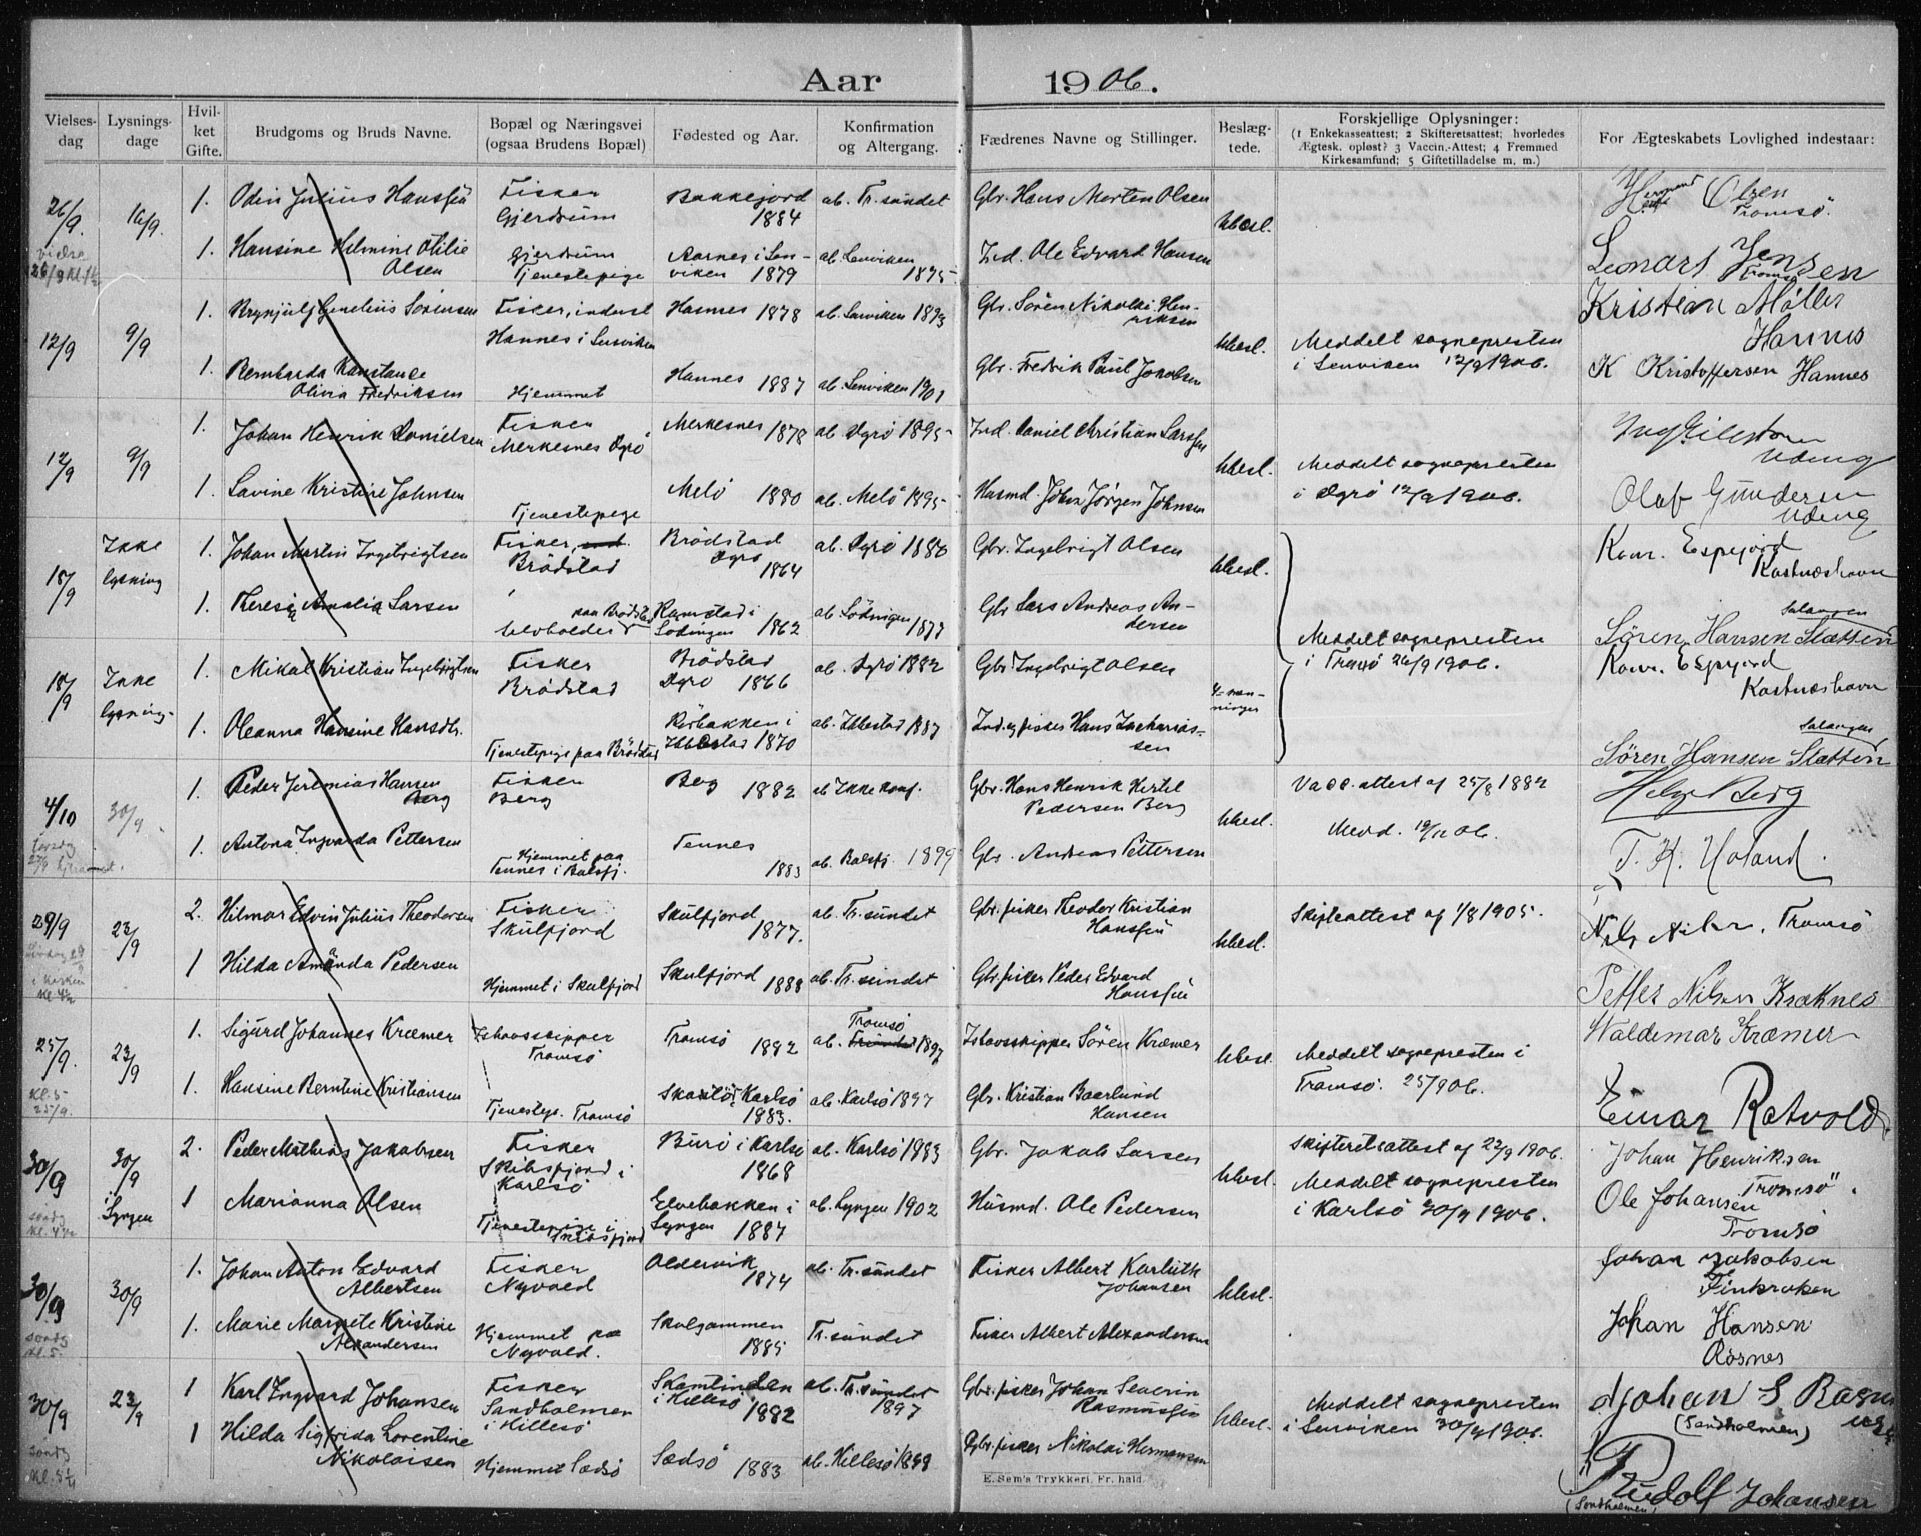 Aar 1906.
Vielses-dag
Lysnings-dage
Hvil-ket Gifte.
Brudgoms og Bruds Navne.
Bopæl og Næringsvei
(ogsaa Brudens Bopæl)
Fødested og Aar.
Konfirmation
og Altergang.
Fædrenes Navne og Stillinger.
Beslæg-tede.
Forskjellige Oplysninger:
(1 Enkekasseattest; 2 Skifteretsattest; hvorledes
Ægtesk. opløst? 3 Vaccin.-Attest; 4 Fremmed
Kirkesamfund; 5 Giftetilladelse m. m.)
For Ægteskabets Lovlighed indestaar:
26/9 16/9. 1. Odin Julius Hansen Fisker Gjerdrum Bakkejord 1884 ab. Tr.sundet Gbr. Hans Morten Olsen Ubesl. Olsen Tromsø.
1. Hansine Helmine Otilie Olsen Gjerdrum Tjenestepige Aarnes i Lenviken 1879 ab. Lenviken 1895 Ind. Ole Edvard Hansen Lenart Jensen Tromsø
12/9 9/9 1. Brynjulf Cornelius Sørensen Fisker, inderst Hannes i Lenviken Hannes 1878 ab. Lenviken 1893 Gbr. Søren Nikolai Henriksen Ubesl. Meddelt sognepresten i Lenviken 12/9 1906. Kristian Møller Hannes
1. Bernharda Konstanse Olivia Fredriksen Hjemmet Hannes 1887 ab. Lenviken 1901 Gbr. Fredrik Paul Jakobsen K Kristoffersen Hannes
12/9 9/9 1. Johan Henrik Danielsen Fisker Merkesnes Dyrø Merkesnes 1878 ab. Dyrø 1895 Ind. Daniel Kristian Larssen Ubesl. Meddelt sognepresten i Dyrø 12/9 1906.
1. Lavine Kristine Johnsen Tjenestepige Melø 1880 ab. Melø 1895 Husmd. John Jørgen Johnsen Olaf Gundersen
18/9 Ikke lysning 1. Johan Martin Ingebrigtsen Fisker, Brødstad Brødstad Dyrø 1864 ab. Dyrø 1880 Gbr. Ingebrigt Olsen Ubesl. Konr. Espejord Kastneshavn
1. Theresia Amalia Larsen paa Brødstad Ramstad i Lødingen 1862 ab. Lødingen 1877 Gbr Lars Andreas Andersen Meddelt sognepresten i Tranø 26/9 1906. Søren Hansen Slætten Salangen
18/9 Ikke lysning 1. Mikal Kristian Ingebrigtsen Fisker Brødstad Brødstad Dyrø 1866 ab. Dyrø 1882 Gbr. Ingebrigt Olsen Konr. Espejord Kastneshavn
1. Oleanna Hansine Hansdtr. Tjenestepige paa Brødstad Rørbakken i Ibbestad 1870 ab. Ibbestad 1887 Ind. og fisker Hans Zachariassen Søren Hansen Slætten Salangen
4/10 30/9 1. Peder Jeremias Hansen Berg Fisker Berg Berg 1882 ab Ikke konf. Gbr. Hans Henrik Kertel Pedersen Berg Ubesl. Vacc. attest af 25/8 1882 Berg
1. Antona Ingvarda Pettersen Hjemmet paa Tennes i Balsfj. Tennes 1883 ab. Balsfj. 1899 Gbr. Andreas Pettersen Medd. T. K. Holand.
29/9 23/9 2. Hilmar Edvin Julius Theodorsen Fisker Skulfjord Skulfjord 1877. ab. Tr.sundet Gbr. fisker Theodor Kristian Hanssen Ubesl. Skifteattest af 1/8 1905. Tromsø
1 Hilda Amanda Pedersen Hjemmet i Skulfjord Skulfjord 1888 ab. Tr.sundet Gbr. fisker Peder Edvard Hanssen Petter Nilsen Kræknes
25/9. 23/9 1. Sigurd Johannes Kræmer Ishavsskipper Tromsø Tromsø 1882 ab. Tromsø 1897 Ishavsskipper Søren Kræmer Ubesl. Meddelt sognepresten i Tromsø. 25/9 06. Waldemar Kræmer
Kl. 5 25/9. 1. Hansine Berntine Kristiansen Tjenestepg. Tromsø Karlsø 1883. ab. Karlsø 1897 Gbr. Kristian Baarlund Hansen Einar Rotvold
30/9 30/9 i Lyngen 2. Peder Mathias Jakobsen Fisker Skibsfjord i Karlsø Burø i Karlsø 1868 ab. Karlsø 1883 Gbr. Jakob Larsen Ubesl. Skifteretsattest af 22/9 1906. Johan Henriksen Tromsø
1 Marianna Olsen Tjenestepige i Skibsfjord Elvebakken i Lyngen 1887 ab. Lyngen 1902 Husmd. Ole Pedersen Meddelt sognepresten i Karlsø 30/9 1906. Ole Johansen Tromsø
30/9 30/9 1. Johan Anton Edvard Albertsen Fisker Nyvold Oldervik 1874 ab. Tr.sundet Fisker Albert Karluth Johansen Ubesl. Johan Jakobsen Finkroken
1. Marie Margrete Kristine Alexandersen Hjemmet paa Nyvold. Skolgammen 1885 Tr.sundet Fisker Albert Alexandersen Johan Hansen Røsnes
30/9 23/9 1 Karl Ingvard Johansen Fisker Sandholmen i Hillesø Skamtinden i Hillesø 1882 ab. Tr.sundet 1897 Gbr. fisker Johan Severin Rasmussen Ubesl. Meddelt sognepresten i Lenviken 30/9 1906. Johan S. (Sandholmen)
1 Hilda Sigfrida Lorentine Nikolaisen Hjemmet Sædsø Sædsø 1883 ab. Hillesø 1898 Gbr. fisker Nikolai Hermansen Rudolf Johansen (Sandholmen)
E. Sem's Trykkeri, Fr. hald.